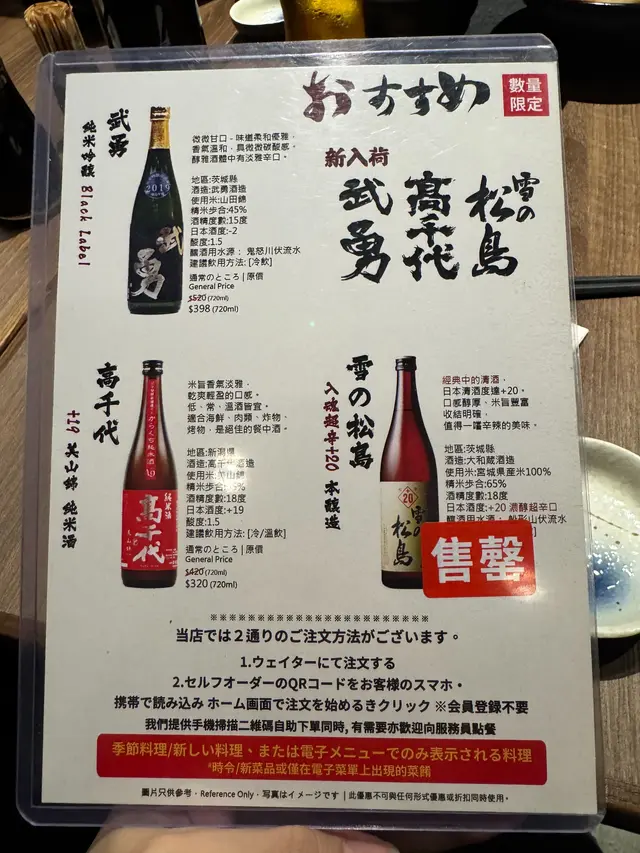 おすすめ
數量
限定
新入荷
武勇
高千代
雪の松島
武勇
純米吟醸 Black Label
2019
武勇
微微甘口－味道柔和優雅、
香氣溫和，具微微碳酸感。
醇雅酒體中有淡雅辛口。
地區:茨城縣
酒造:武勇酒造
使用米:山田錦
精米步合:45%
酒精度數:15度
日本酒度:-2
酸度:1.5
釀酒用水源： 鬼怒川伏流水
建議飲用方法: [冷飲]
通常のところ | 原價
General Price
$520 (720ml)
$398 (720ml)
高千代
+19 美山錦 純米酒
からくち純米酒
+19
純米酒
高千代
米旨香氣淡雅、
乾爽輕盈的口感。
低、常、溫酒皆宜。
適合海鮮、肉類、炸物、
烤物，是絕佳的餐中酒。
地區:新潟縣
酒造:高千代酒造
使用米:美山錦
精米步合:
酒精度數:18度
日本酒度:+19
酸度:1.5
建議飲用方法: [冷/溫飲]
通常のところ | 原價
General Price
$420 (720ml)
$320 (720ml)
雪の松島
入魂超辛+20 本醸造
20
雪の
松島
經典中的清酒、
日本清酒度達+20。
口感醇厚、米旨豐富
收結明確，
值得一嚐辛辣的美味。
地區:茨城縣
酒造:大和蔵酒造
使用米:宮城県産米100%
精米步合:65%
酒精度數:18度
日本酒度:+20 濃醇超辛口
釀酒用水源： 船形山伏流水
售罄
※※※※※※※※※※※※※※※※※※※※※※※※※
当店では２通りのご注文方法がございます。
1.ウェイターにて注文する
2.セルフオーダーのQRコードをお客様のスマホ・
携帯で読み込み ホーム画面で注文を始めるきクリック ※会員登録不要
我們提供手機掃描二維碼自助下單同時, 有需要亦歡迎向服務員點餐
季節料理/新しい料理、または電子メニューでのみ表示される料理
*時令/新菜品或僅在電子菜單上出現的菜餚
圖片只供參考・Reference Only・写真はイメージです｜此優惠不可與任何形式優惠或折扣同時使用。